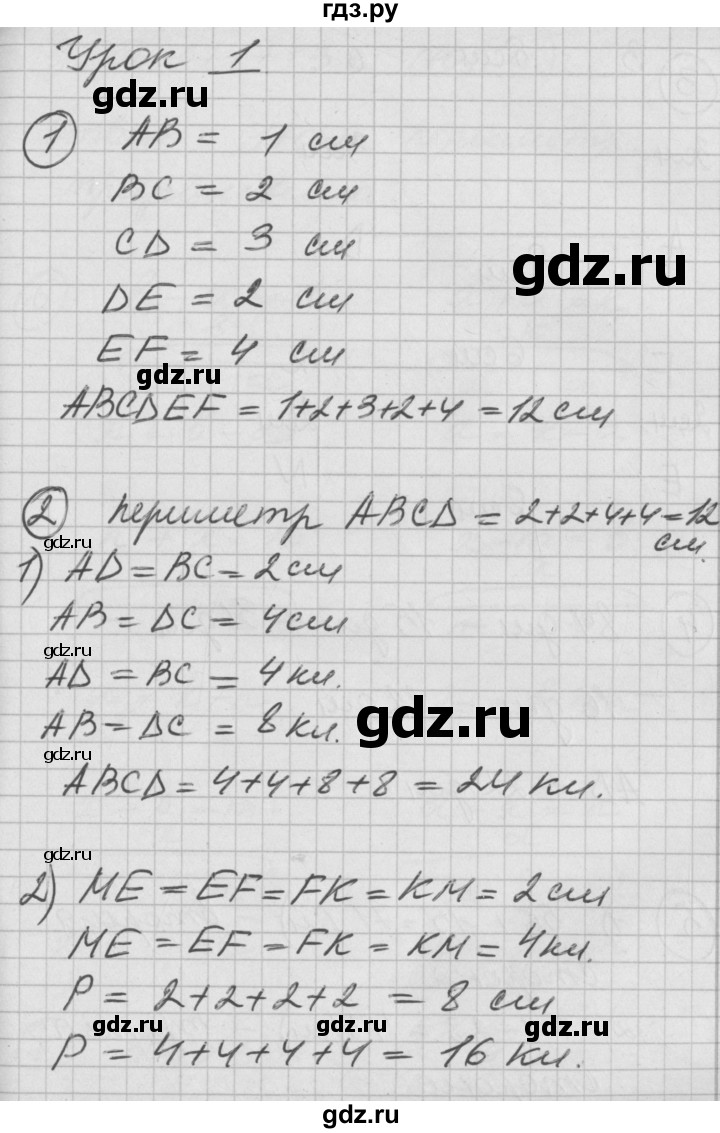 гдз.ру
Урок 1
gdz.ru
1 AB = 1 см
BC = 2 см
CD = 3 см
gdz.ru
DE = 2 см
EF = 4 см
gdz.ru
ABCDEF = 1+2+3+2+4 = 12 см
2 периметр ABCD = 2+2+4+4=12
см.
gdz.ru
1) AD = BC = 2 см
AB = DC = 4 см
gdz.ru
AD = BC = 4 кл.
gdz.ru
AB = DC = 8 кл.
gdz.ru
ABCD = 4+4+8+8 = 24 кл.
gdz.ru
2) ME = EF = FK = KM = 2 см
ME = EF = FK = KM = 4 кл.
P = 2+2+2+2 = 8 см
gdz.ru gdz.ru gdz.ru
P = 4+4+4+4 = 16 кл.
gdz.ru